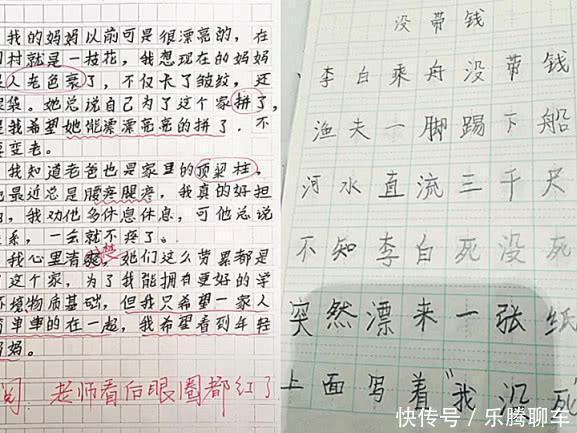 我的妈妈以前可是很漂亮的，在
村就是一枝花，我想现在的妈妈
人老色衰了，不仅卡了皱纹，还
袋。她总说自己为了这个家拼了，
我希望她能漂漂亮亮的拼了，不
变老。
我知道老爸也是家里的顶梁柱，
最近总是腰疼腿疼，我真的好担
，我劝他多休息休息，可他总说
系，一会就不疼了。
我心里清楚，她们这么劳累都是
了这个家，为了我能拥有更好的学
环境物质基础，但我只希望一家人
简单单的在一起，我希望看到年轻
妈妈。
阅 老师看后眼圈都红了
没带钱
李白乘舟没带钱
渔夫一脚踢下船
河水直流三千尺
不知李白死没死
突然漂来一张纸
上面写着“我沉死
快传号／乐腾聊车